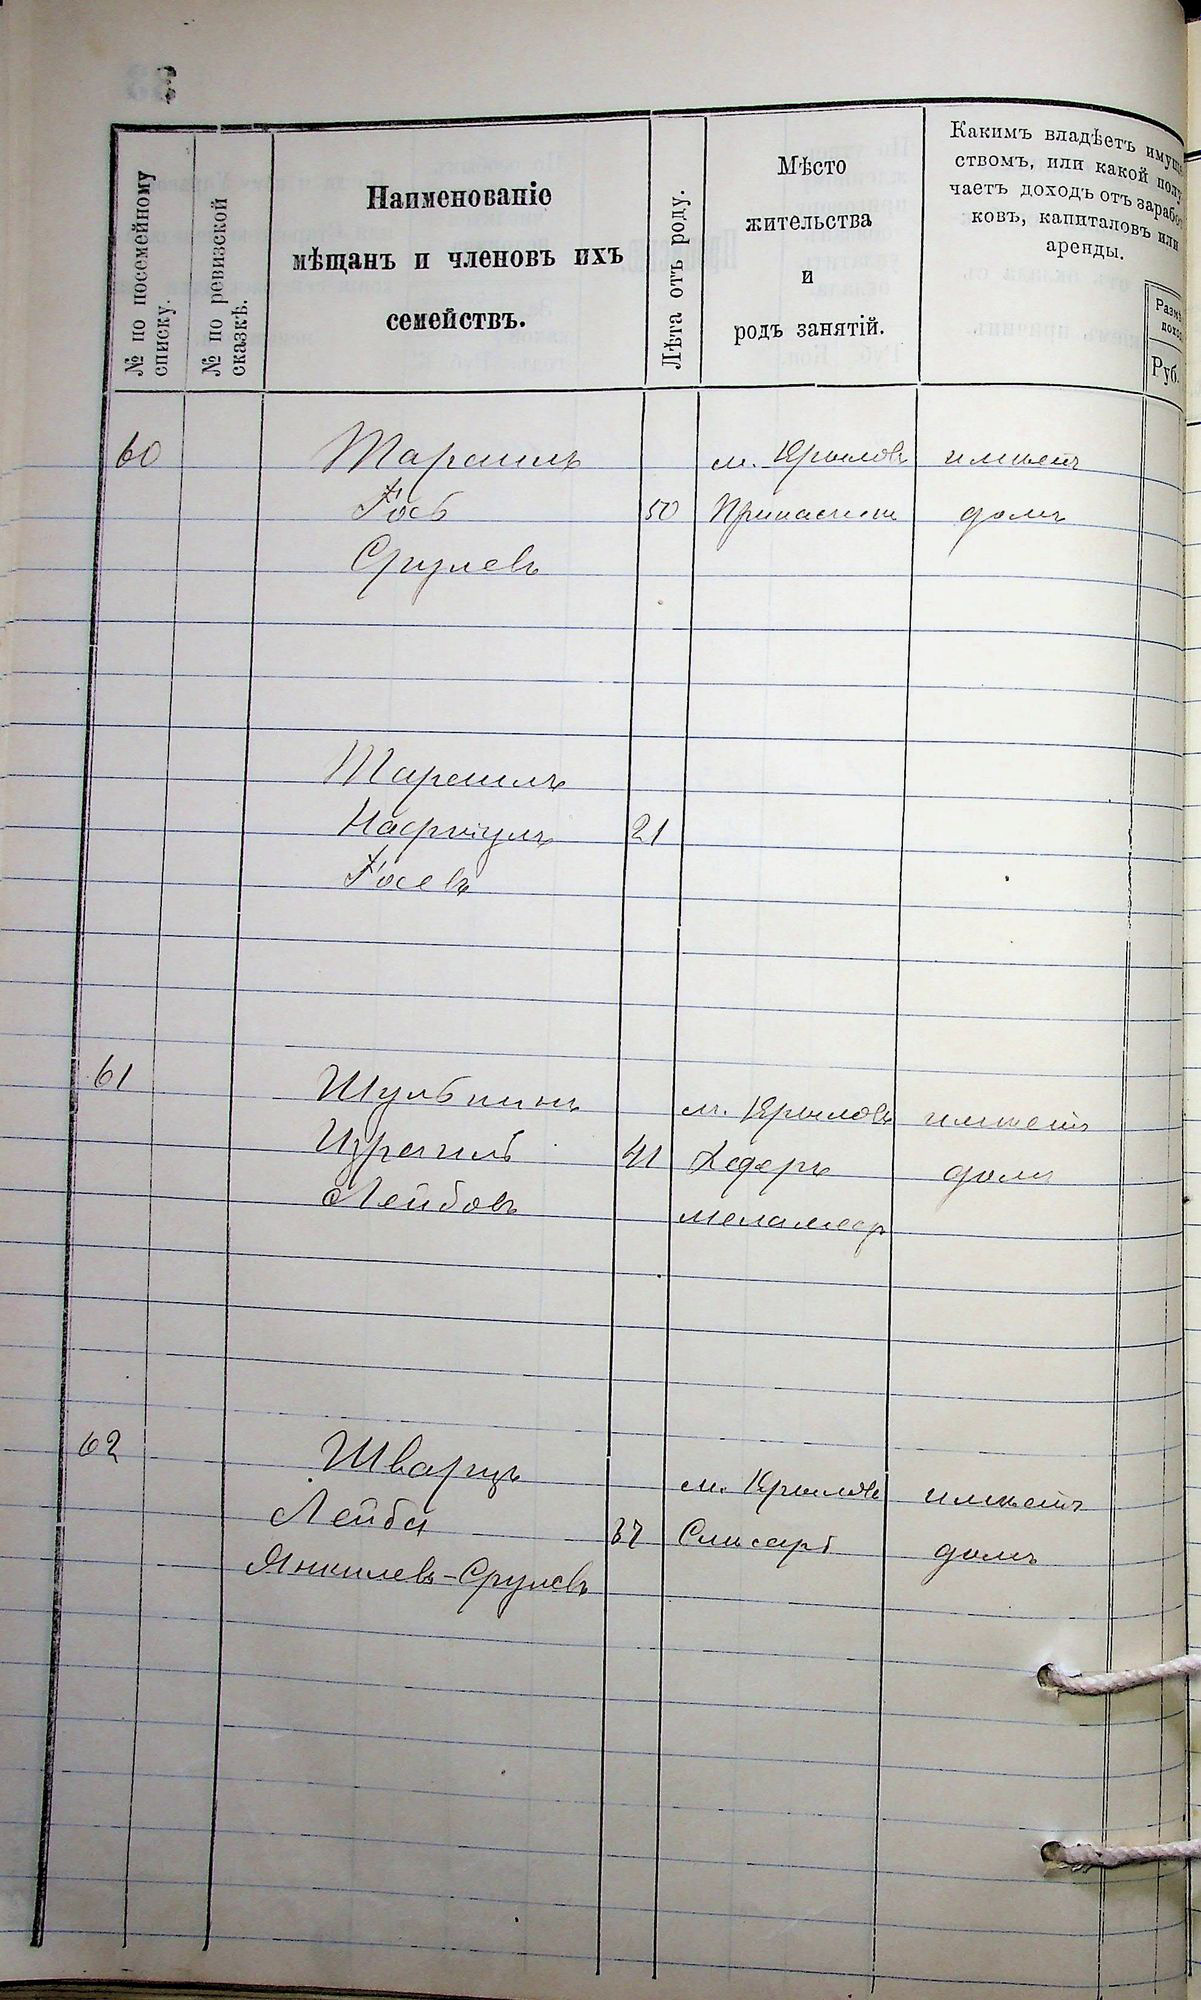 № по посемейному
списку.
№ по ревизской
сказкѣ.
Наименованіе
мѣщанъ и членовъ ихъ
семействъ.
Лѣта отъ роду.
Мѣсто
жительства
и
родъ занятій.
Какимъ владѣетъ имуще
ствомъ, или какой полу
чаетъ доходъ отъ зарабо
ковъ, капиталовъ или
аренды.
Размѣ
дохо
Руб.
60 м. Крыловъ имѣетъ
50 домъ
Срулевъ
21
61 Шулькинъ м. Крыловъ имѣетъ
Израиль 41 Хедеръ домъ
Лейбовъ меламедъ
62 Шварцъ м. Крыловъ имѣетъ
Лейба 37 Слисарь домъ
Янкилевъ-Срулевъ